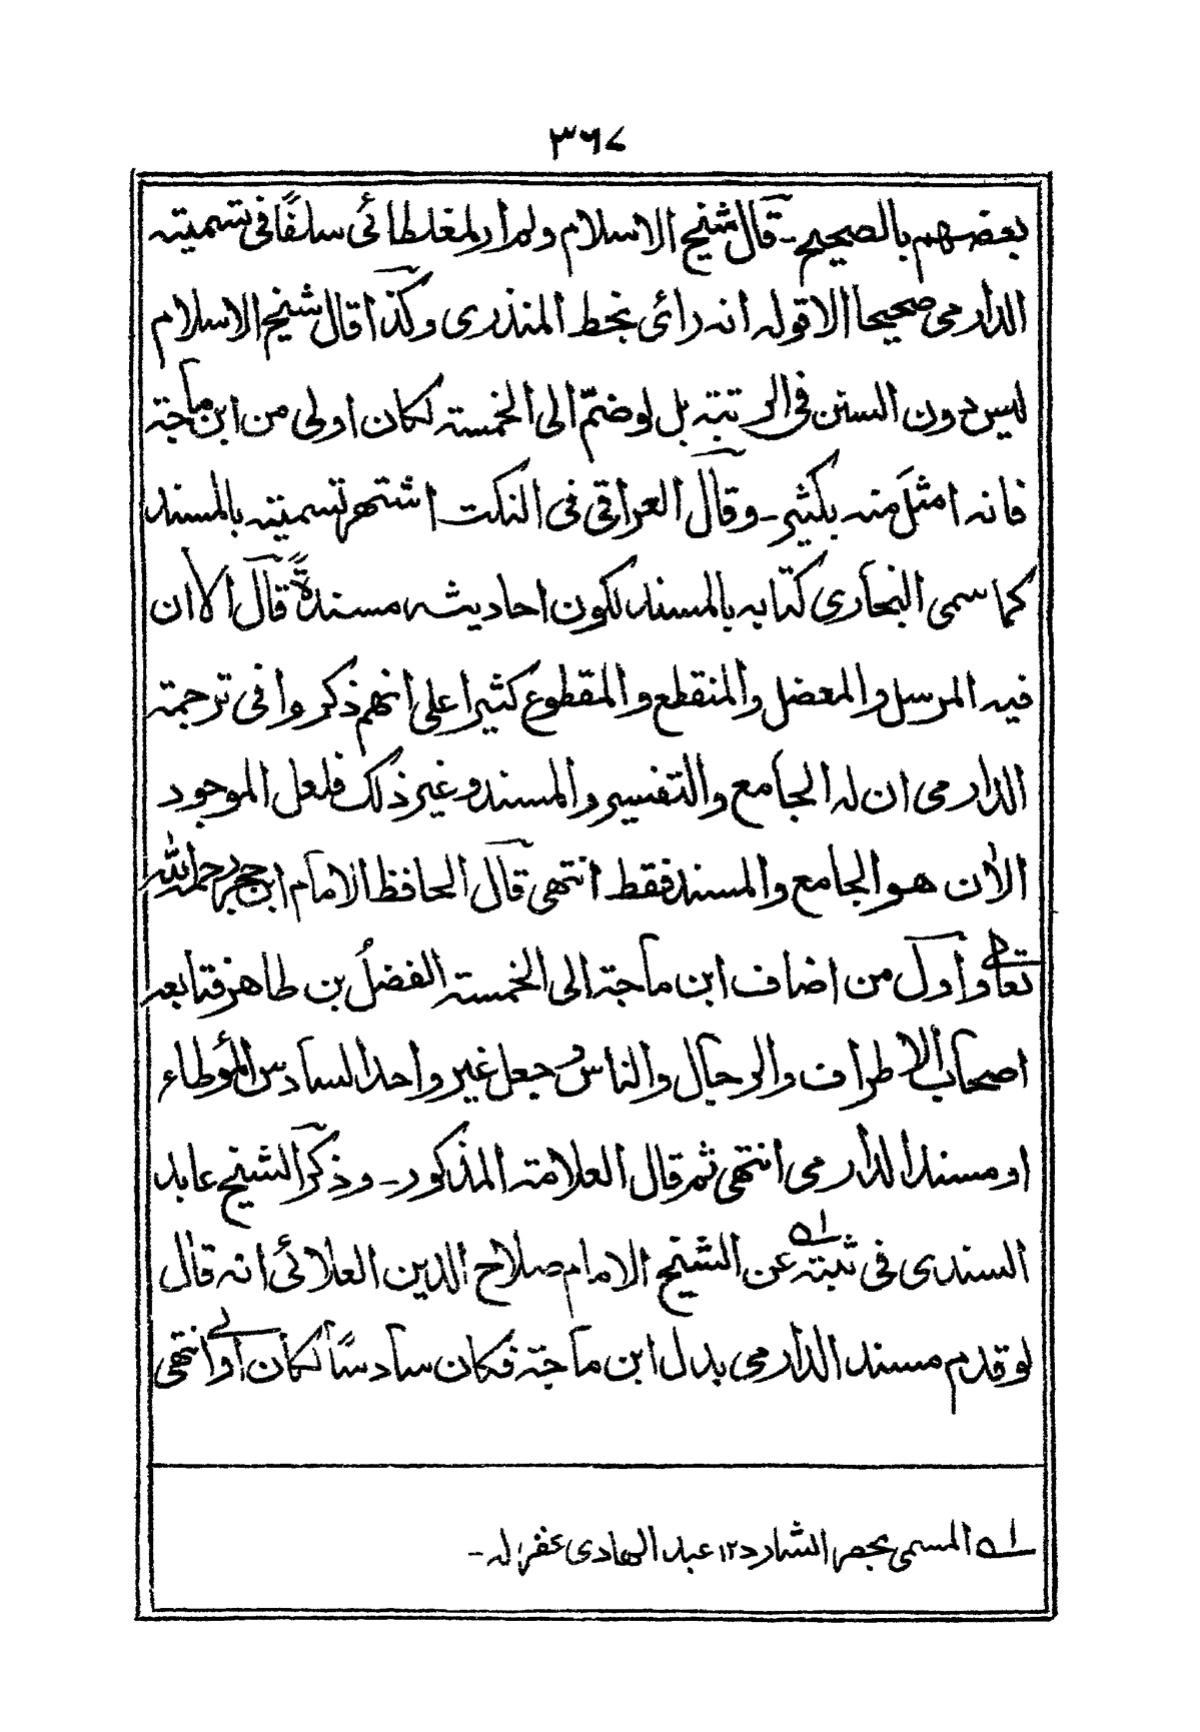 ٣٦٧
بعضهم بالصحيح۔ قال شيخ الاسلام ولم أر لمغلطائی سلفًا فی تسميته
الدارمی صحيحا الا قوله انه رائی بخط المنذری وكذا قال شيخ الاسلام
ليس دون السنن فی الرتبة بل لو ضمّ الی الخمسة لكان اولی من ابن ماجة
فانه امثل منه بكثير۔ وقال العراقی فی النكت اشتهر تسميته بالمسند
كما سمی البخاری كتابه بالمسند لكون احاديثه مسندةً قال الا ان
فيه المرسل والمعضل والمنقطع والمقطوع كثيرا علی انهم ذكروا فی ترجمة
الدارمی ان له الجامع والتفسير والمسند وغير ذلك فلعل الموجود
الاٰن هو الجامع والمسند فقط انتهی قال الحافظ الامام ابن حجر رحمه الله
تعالی واول من اضاف ابن ماجة الی الخمسة الفضلُ بن طاهر فتابعه
اصحاب الاطراف والرجال والناس وجعل غير واحد السادس المؤطاء
او مسند الدارمی انتهی ثم قال العلامة المذكور۔ وذكر الشيخ عابد
السندی فی ثبته ؎١ عن الشيخ الامام صلاح الدين العلائی انه قال
لو قدم مسند الدارمی بدل ابن ماجة فكان سادسًا لكان اولی انتهی
؎١ المسمی بحصر الشارد ١٢ عبد الهادی غفر له۔